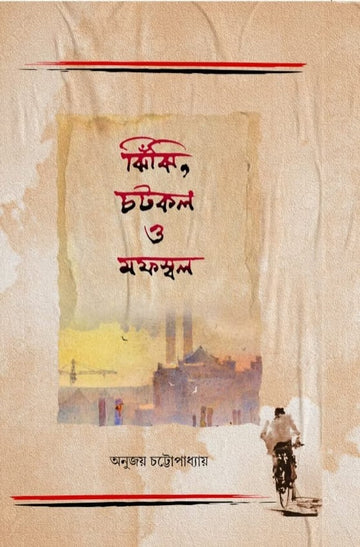 ঝিঁঝি,
চটকল
ও
মফস্বল
অনুজয় চট্টোপাধ্যায়